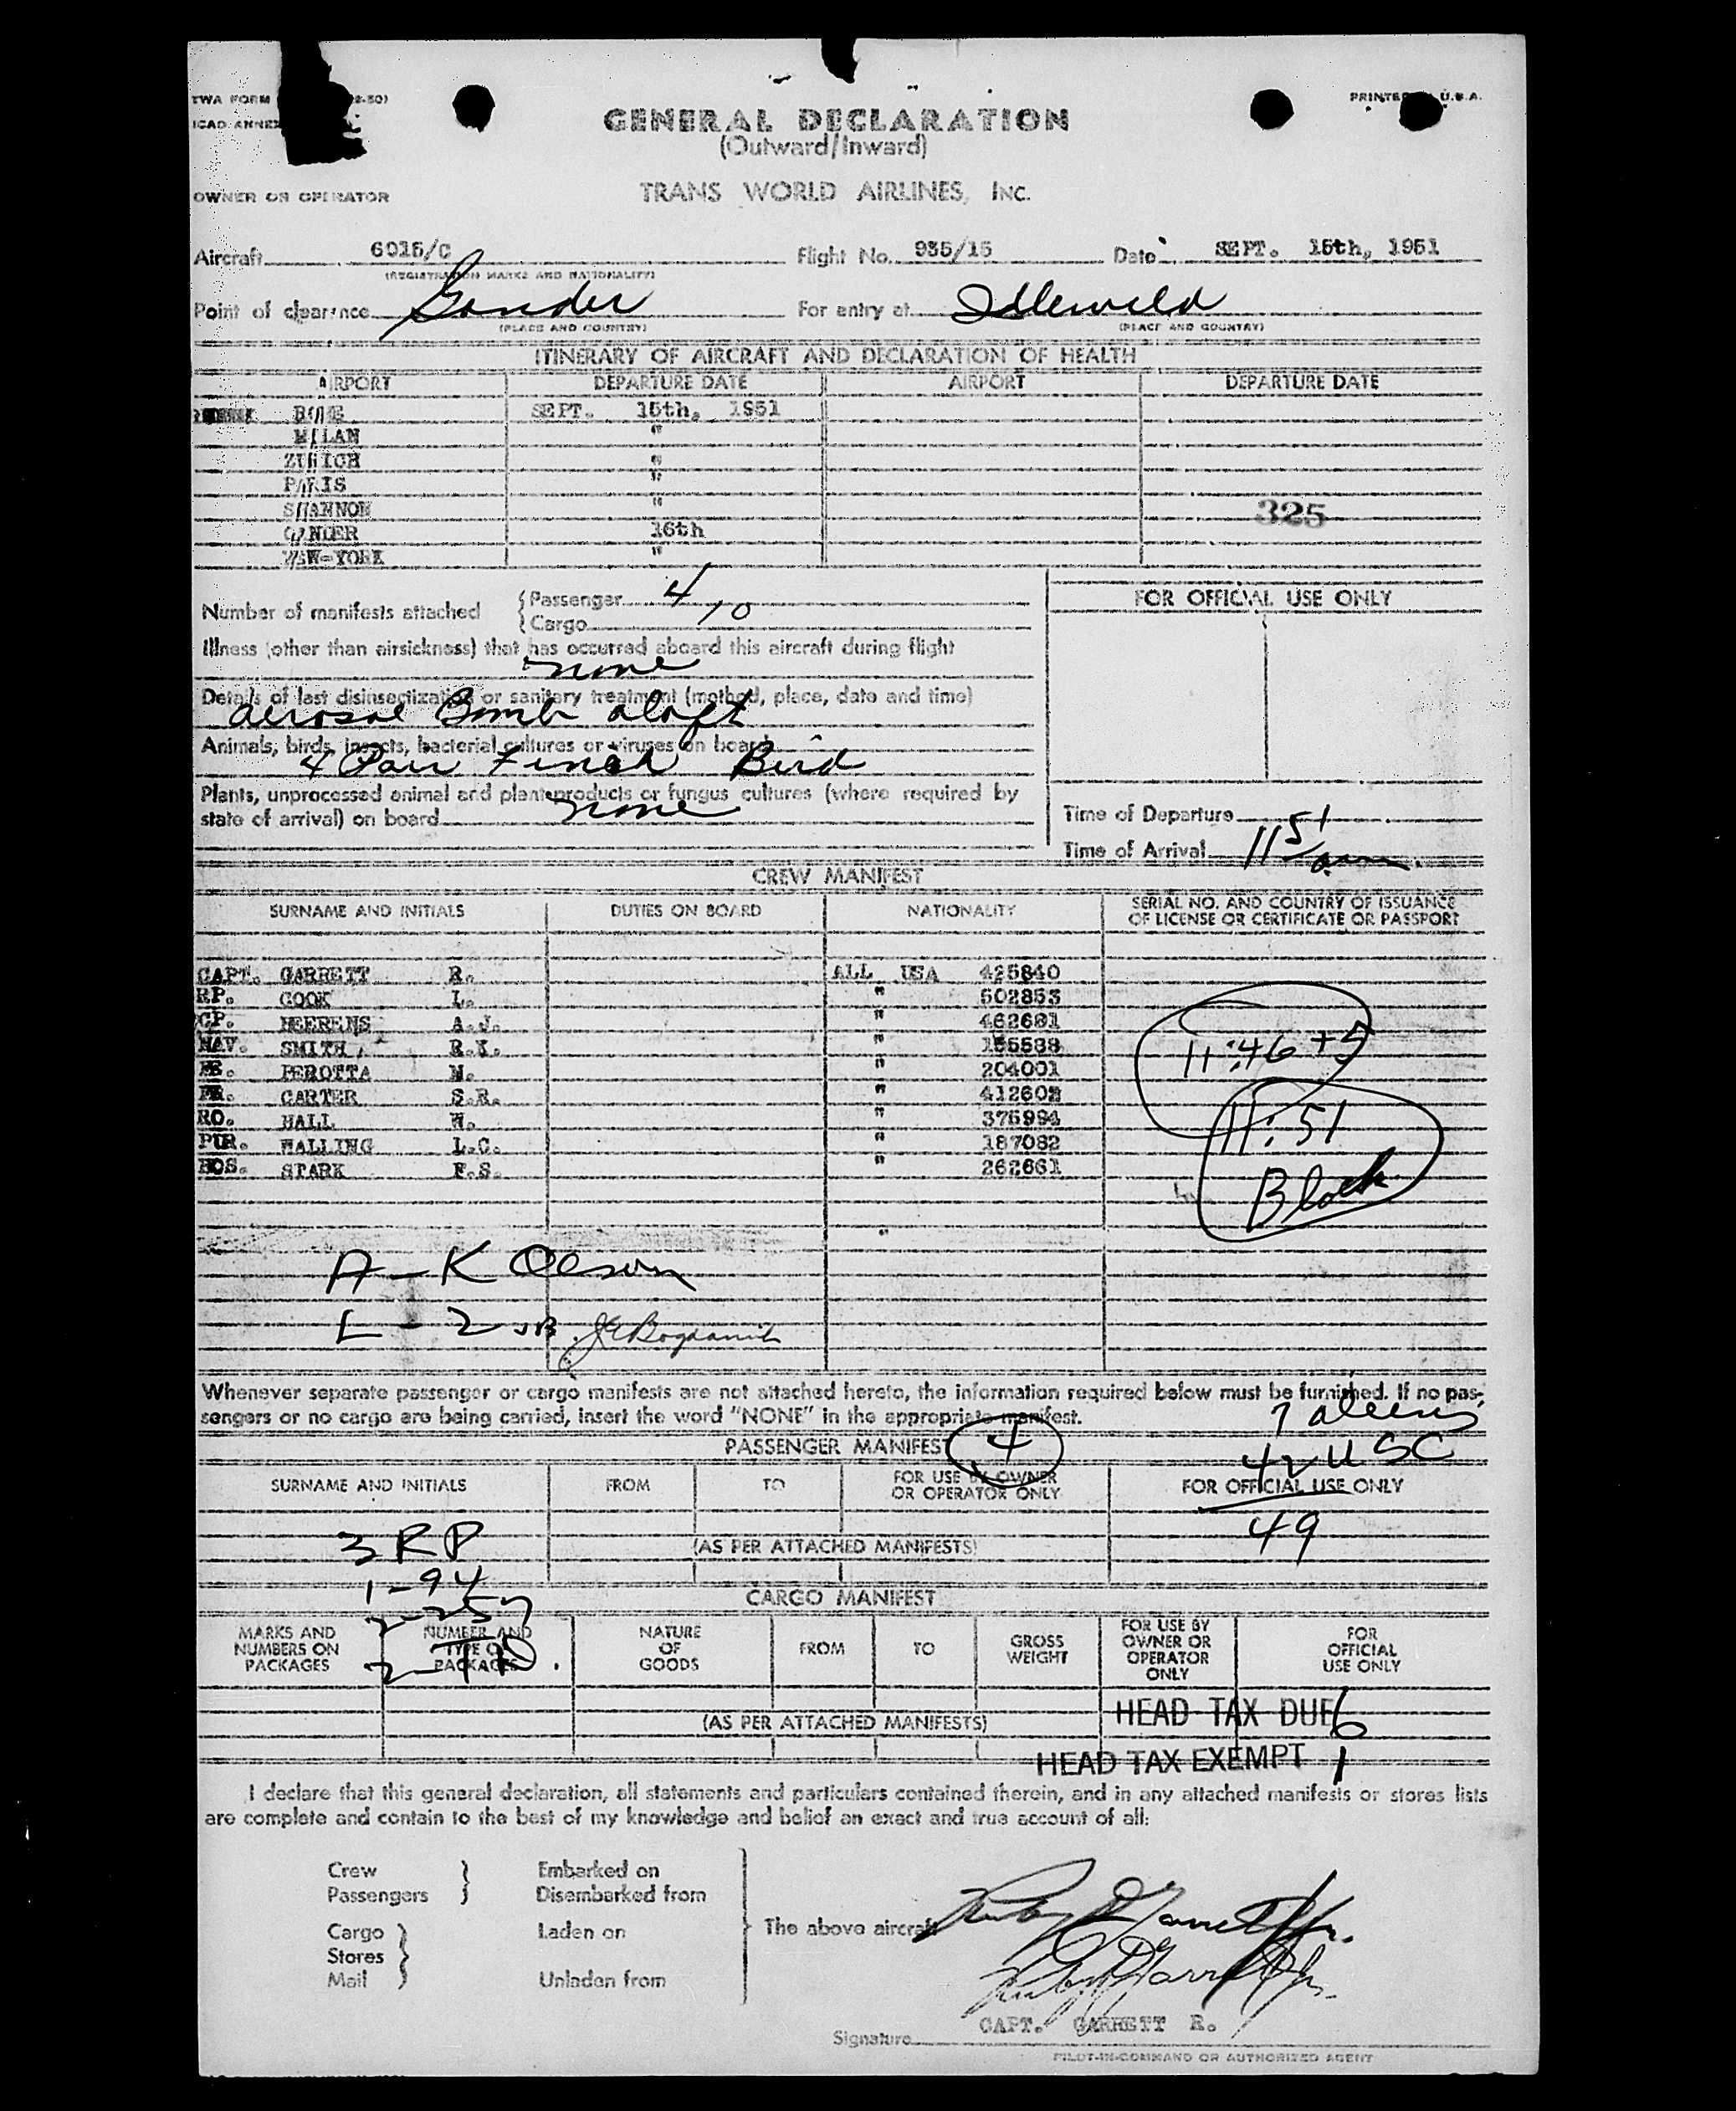 TWA FORM
PRINTED U.S.A.
ICAO ANNEX
GENERAL DECLARATION
(Outward/Inward)
OWNER OR OPERATOR
TRANS WORLD AIRLINES, INC.
Aircraft 6015/C Flight No. 935/15 Date SEPT. 15th, 1951
(REGISTRATION MARKS AND NATIONALITY)
Point of clearance Gander For entry at Idlewild
(PLACE AND COUNTRY) (PLACE AND COUNTRY)
ITINERARY OF AIRCRAFT AND DECLARATION OF HEALTH
AIRPORT DEPARTURE DATE AIRPORT DEPARTURE DATE
ROME SEPT. 15th, 1951
MILAN "
ZURICH "
PARIS "
SHANNON " 325
GANDER 16th
NEW-YORK "
Number of manifests attached { Passenger 4
{ Cargo 10
FOR OFFICIAL USE ONLY
Illness (other than airsickness) that has occurred aboard this aircraft during flight
none
Details of last disinsectization or sanitary treatment (method, place, date and time)
aerosol Bomb aloft
Animals, birds, insects, bacterial cultures or viruses on board
4 Pair Finch Bird
Plants, unprocessed animal and plant products or fungus cultures (where required by
state of arrival) on board none
Time of Departure
Time of Arrival 11 51 am
CREW MANIFEST
SURNAME AND INITIALS DUTIES ON BOARD NATIONALITY SERIAL NO. AND COUNTRY OF ISSUANCE
OF LICENSE OR CERTIFICATE OR PASSPORT
CAPT. GARRETT R. ALL USA 425840
RP. COOK L. " 502853
CP. HEERENS A.J. " 462681
NAV. SMITH R.I. " 155538
FE. PEROTTA M. " 204001
CARTER S.R. " 412602
RO. HALL W. " 375994
PUR. WALLING L.C. " 187082
HOS. STARK F.S. " 262661
11:46 + 5
11:51
Block
"
A - K Olson
L - Z JB. JE Bogdanich
Whenever separate passenger or cargo manifests are not attached hereto, the information required below must be furnished. If no pas-
sengers or no cargo are being carried, insert the word "NONE" in the appropriate manifest.
7 aliens
PASSENGER MANIFEST 4
42 USC
SURNAME AND INITIALS FROM TO FOR USE BY OWNER
OR OPERATOR ONLY FOR OFFICIAL USE ONLY
49
3 RP
(AS PER ATTACHED MANIFESTS)
1-94
CARGO MANIFEST
2-257
MARKS AND
NUMBERS ON
PACKAGES NUMBER AND
TYPE OF
PACKAGES NATURE
OF
GOODS FROM TO GROSS
WEIGHT FOR USE BY
OWNER OR
OPERATOR
ONLY FOR
OFFICIAL
USE ONLY
HEAD TAX DUE 6
(AS PER ATTACHED MANIFESTS)
HEAD TAX EXEMPT 1
I declare that this general declaration, all statements and particulars contained therein, and in any attached manifests or stores lists
are complete and contain to the best of my knowledge and belief an exact and true account of all:
Crew } Embarked on
Passengers } Disembarked from
Cargo } Laden on
The above aircraft
Stores }
Mail } Unladen from
CAPT. GARRETT R.
Signature
PILOT-IN-COMMAND OR AUTHORIZED AGENT